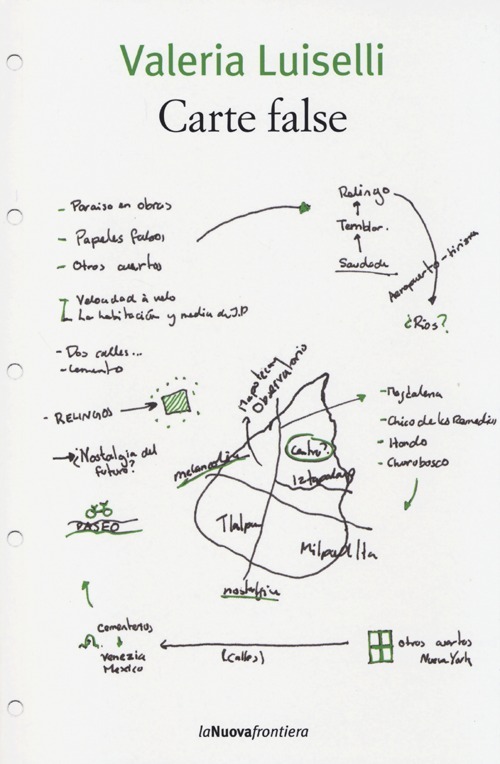 Valeria Luiselli
Carte false
- Paraiso en obras
- Papeles falsos
- Otros cuartos
Velocidad à velo
La habitación y media de J.D
- Dos calles...
- cemento
- RELINGOS
¿Nostalgia del
futuro?
PASEO
Relingo
Temblor.
Saudade
Aeropuerto-
¿Ríos?
Mapoteca y
Observatorio
melancolia
Centro?
Iztapalapa
Tlalpan
Milpa Alta
nostalgia
- Magdalena
- Chico de los Remedios
- Hondo
- Churubosco
cementerios
venezia
Mexico
(calles)
otros cuartos
Nueva York
laNuovafrontiera